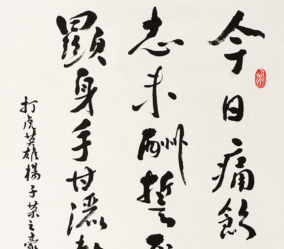 今日痛飲
志未酬誓不
顯身手甘灑熱
打虎英雄楊子榮之豪